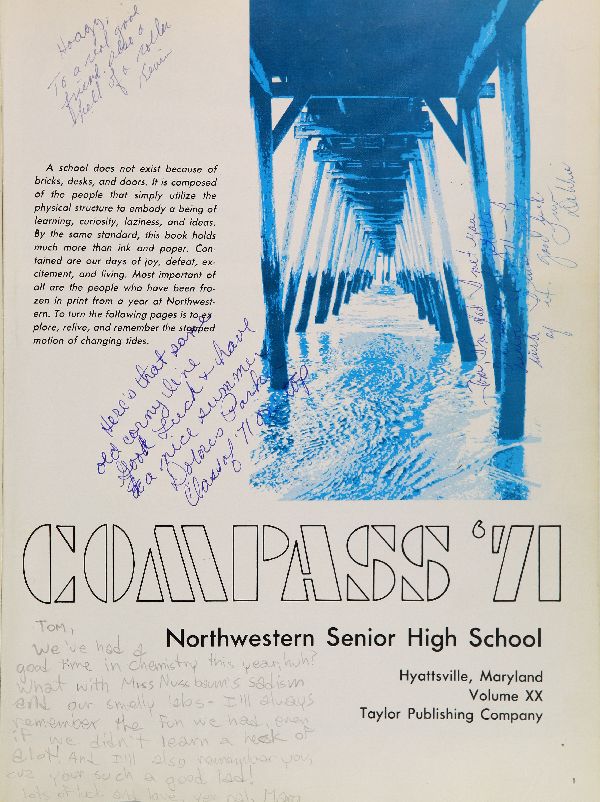 Hoagy,
To a real good
friend. Also a
hell of a
Kevin
A school does not exist because of
bricks, desks, and doors. It is composed
of the people that simply utilize the
physical structure to embody a being of
learning, curiosity, laziness, and ideas.
By the same standard, this book holds
much more than ink and paper. Con-
tained are our days of joy, defeat, ex-
citement, and living. Most important of
all are the people who have been fro-
zen in print from a year at Northwest-
ern. To turn the following pages is to ex-
plore, relive, and remember the stopped
motion of changing tides.
Here's that same
old corny line
Good Luck & have
a nice summer
Dolores Parks
Class of '71
Tom I'm glad I met you
wish you
of good luck
Love
Debbie
COMPASS '71
Northwestern Senior High School
Hyattsville, Maryland
Volume XX
Taylor Publishing Company
TOM,
We've had a
good time in chemistry this year, huh?
What with Miss Nussbaum's sadism
and our smelly labs - I'll always
remember the fun we had, even
if we didn't learn a heck of
alot! And I'll also remember you,
cuz your such a good kid!
lots of luck and love, yer pal, Marg
1